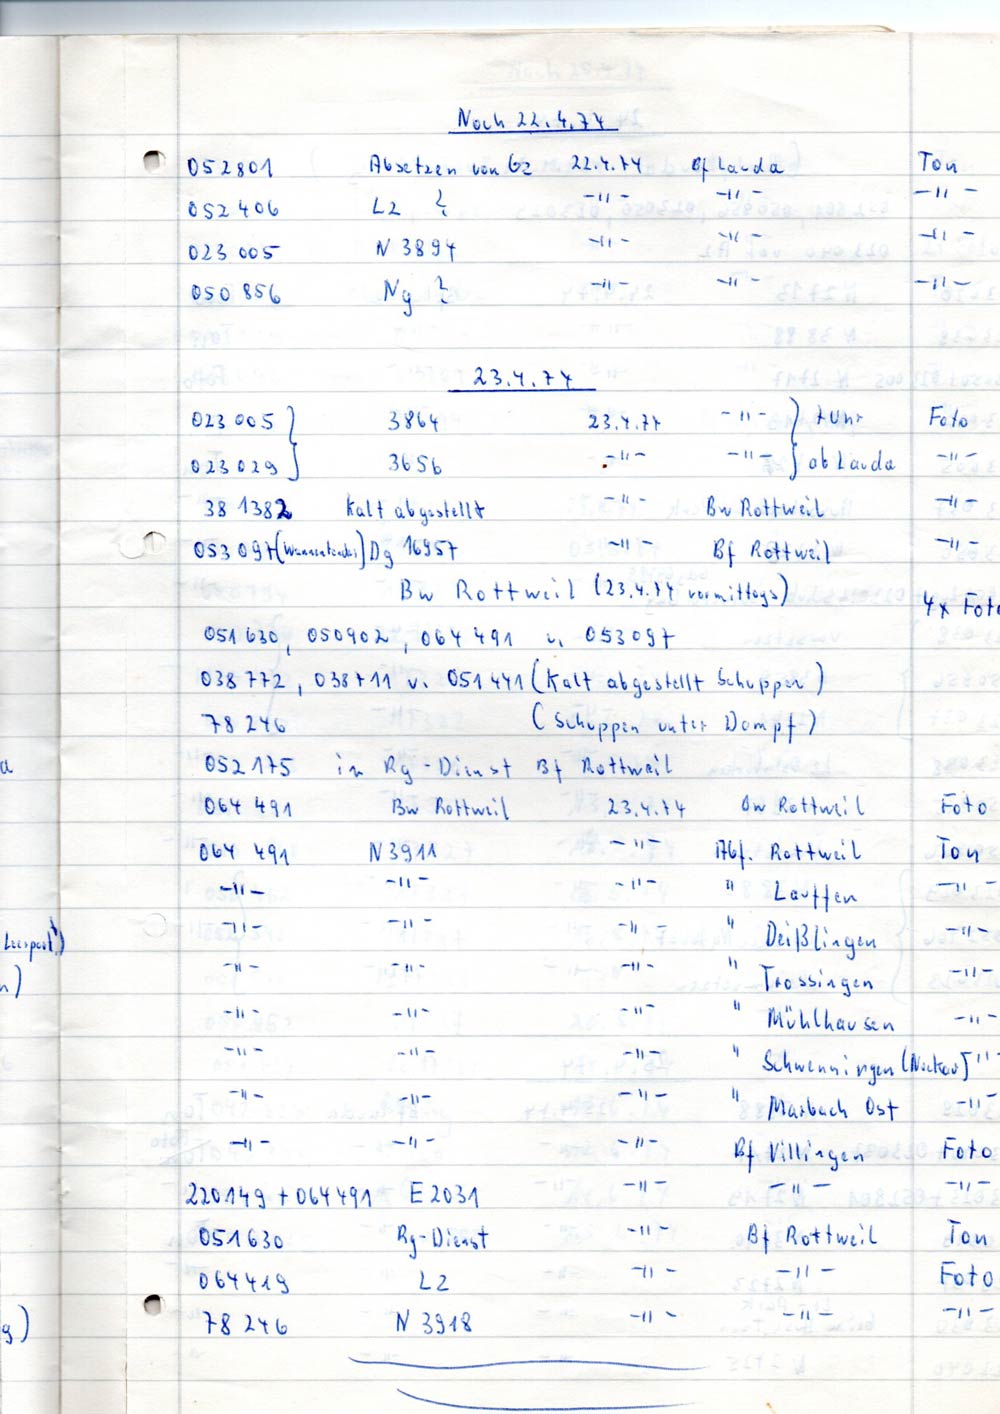 Noch 22.4.74
052801 Absetzen von Gz 22.4.74 Bf Lauda Ton
052 406 Lz ? -"- -"- -"-
023 005 N 3894 -"- -"- -"-
050 856 Ng ? -"- -"- -"-
23.4.74
023 005 } 3864 23.4.74 -"- } Foto
023 029 } 3656 -"- -"- } ab Lauda -"-
38 1382 Kalt abgestellt -"- Bw Rottweil -"-
053 097 (Wannentender) Dg 16957 -"- Bf Rottweil -"-
Bw Rottweil (23.4.74 vormittags) 4x Foto
051 630, 050902, 064 491 u. 053097
038 772, 038711 u. 051 441 (Kalt abgestellt Schuppen)
78 246 (Schuppen unter Dampf)
052 175 in Rg-Dienst Bf Rottweil
064 491 Bw Rottweil 23.4.74 Bw Rottweil Foto
064 491 N 3911 -"- Abf. Rottweil Ton
-"- -"- -"- " Lauffen -"-
-"- -"- -"- " Deißlingen -"-
-"- -"- -"- " Trossingen -"-
-"- -"- -"- " Mühlhausen -"-
-"- -"- -"- " Schwenningen (Neckar) -"-
-"- -"- -"- " Marbach Ost -"-
-"- -"- -"- Bf Villingen Foto
220149 + 064491 E 2031 -"- -"- -"-
051630 Rg-Dienst -"- Bf Rottweil Ton
064419 Lz -"- -"- Foto
78 246 N 3918 -"- -"- -"-